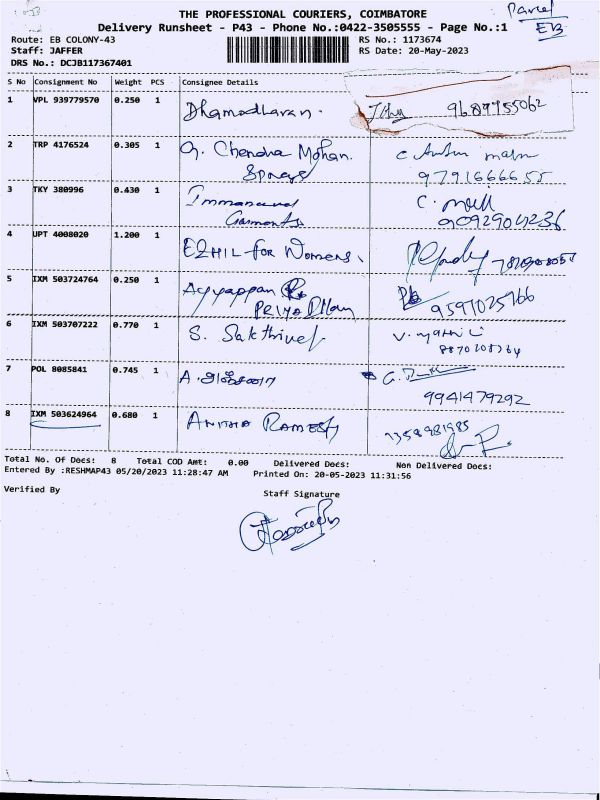 Parcel
EB
THE PROFESSIONAL COURIERS, COIMBATORE
Delivery Runsheet - P43 - Phone No.:0422-3505555 - Page No.:1
Route: EB COLONY-43 RS No.: 1173674
Staff: JAFFER RS Date: 20-May-2023
DRS No.: DCJB117367401
S No Consignment No Weight PCS Consignee Details
1 VPL 939779570 0.250 1 Dhamodharan.
2 TRP 4176524 0.305 1 G. Chendra Mohan.
9791666655
3 TKY 380996 0.430 1 Immanuel
Garments
4 UPT 4008020 1.200 1 EZHIL for Womens.
5 IXM 503724764 0.250 1 Ayyappan
9597025766
6 IXM 503707222 0.770 1 S. Sakthivel
7 POL 8085841 0.745 1
9941479292
8 IXM 503624964 0.680 1 ANITHA RAMESH
Total No. Of Docs: 8 Total COD Amt: 0.00 Delivered Docs: Non Delivered Docs:
Entered By :RESHMAP43 05/20/2023 11:28:47 AM Printed On: 20-05-2023 11:31:56
Verified By Staff Signature